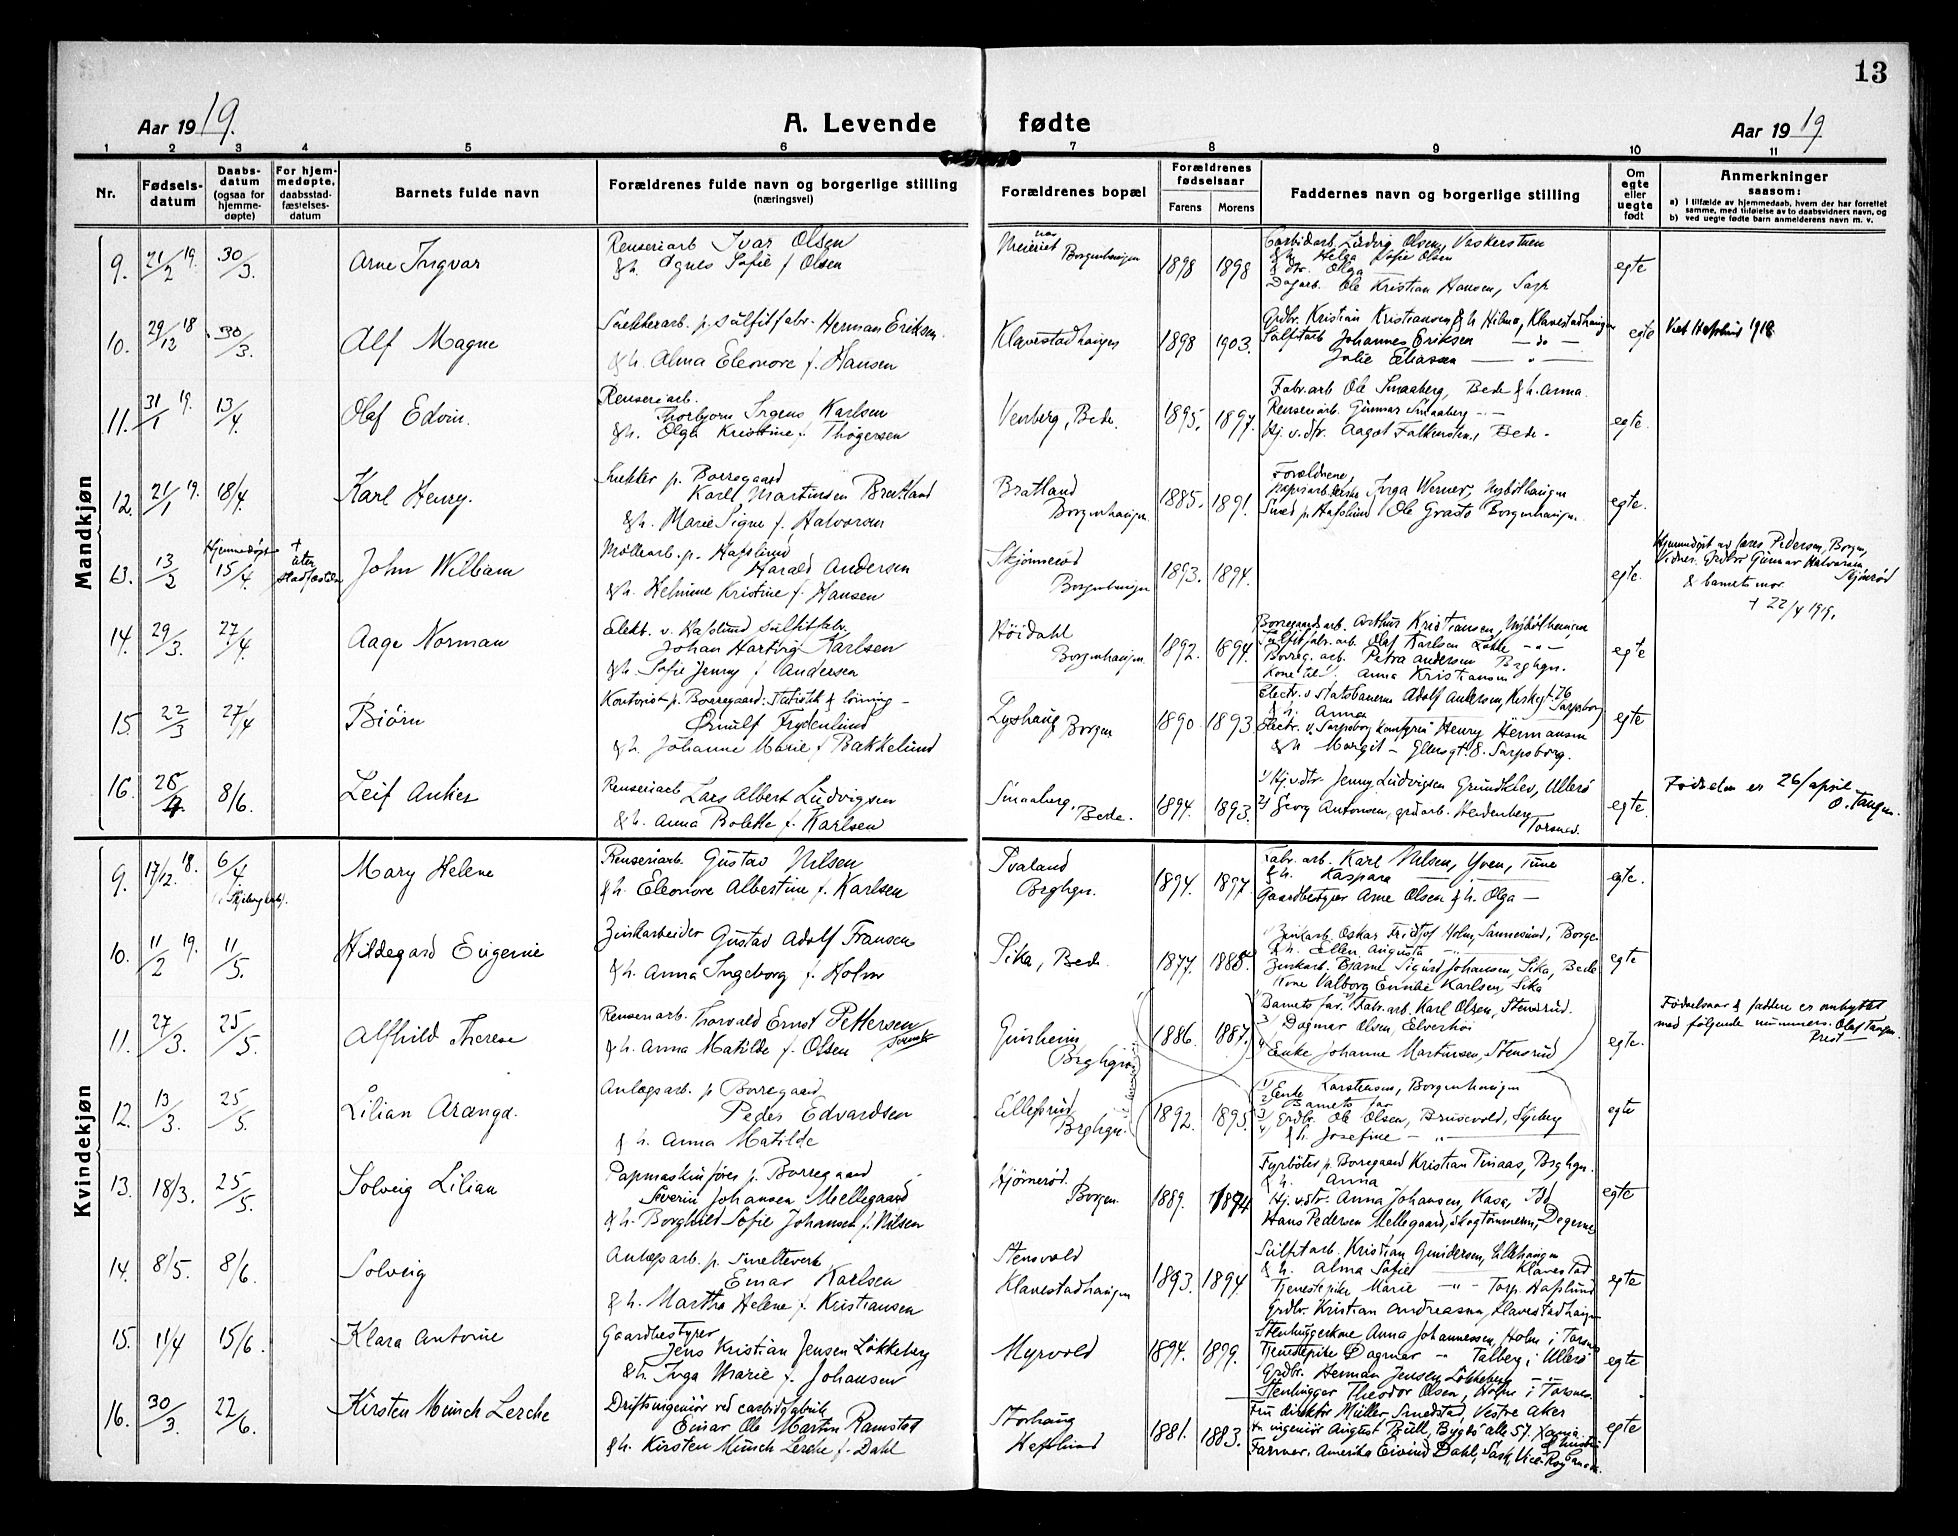 13
Aar 1919.
A. Levende fødte
Aar 1919
1 2 3 4 5 6 7 8 9 10 11
Nr.
Fødsels-datum
Daabs-datum (ogsaa for hjemme-døpte)
For hjem-medøpte, daabsstad-fæstelses-datum
Barnets fulde navn
Forældrenes fulde navn og borgerlige stilling (næringsvei)
Forældrenes bopæl
Forældrenes fødselsaar
Farens Morens
Faddernes navn og borgerlige stilling
Om egte eller uegte født
Anmerkninger saasom:
a) I tilfælde av hjemmedaab, hvem der har forrettet samme, med tilføielse av to daabsvidners navn, og
b) ved uegte fødte barn anmelderens navn m. v.
Mandkjøn
9. 21/2 19. 30/3. Arne Ingvar
Renseriarb Ivar Olsen
& h. Agnes Sofie f Olsen
Borgenhaugen
1898 1898
Carbidarb. Ludvig Olsen,
& h Helga Sofie Olsen
& dtr. Olga
Dagarb. Ole Kristian Hansen, Sarp
egte
10. 29/12 18 30/3. Alf Magne
p. sulfitfabr. Herman Eriksen
& h. Alma Eleonore f. Hansen
Klavestadhaugen
1898 1903.
Grdbr. Kristian Kristiansen & h Hilma, Klavestadhaugen
Sulfitarb Johannes Eriksen — do —
Julie Eliassen — " —
egte
11. 31/1 19. 13/4. Olaf Edvin.
Renseriarb.
Thorbjorn Irgens Karlsen
& h. Olga Kristine f. Thøgersen
Venberg, Bede.
1895. 1897.
Fabr. arb Ole Smaaberg, Bede & h. Anna.
Renseriarb. Gunnar Smaaberg - " -
Hj. v. dtr. Aagot Falkensten, Bede.
egte.
12. 21/1 19. 18/4. Karl Henry.
p. Borregaard
Karl Martinsen Bratland
& h. Marie Signe f. Halvorsen
Bratland
Borgenhaugen.
1885. 1891.
Forældrene,
Inga Werner, Nybølhaugen
Smed p. Hafslund Ole Borgenhaugen.
egte.
13. 13/2 Hjemmedøpt 15/4. + uten stadfæstelse
John William
Møllearb. p. Hafslund
Harald Andersen
& h. Helmine Kristine f. Hansen
Skjønnerød
Borgenhaugen
1893. 1894.
egte.
Hjemmedøpt av Pedersen, Borgen,
Vidner: Grdbr Gunnar Halvorsen
& barnets mor
+ 22/4 1919.
14. 29/3. 27/4. Aage Norman
Elekt. v. Hafslund sulfitfabr.
Johan Hartvig Karlsen
& h. Sofie Jenny f Andersen
Høidahl
Borgenhaugen
1892. 1894.
Borregaardsarb. Arthur Kristiansen, Nybølhaugen
Sulfitfabr. arb. Olaf Karlsen Løkke - " -
Borreg. arb. Petra Andersen Brghgn.
Kone til Anna Kristiansen
egte
15. 22/3 27/4 Biørn
Kontorist p. Borregaard: Statistik & lönning –
Ørnulf Frydenlund
& h. Johanne Marie f Bakkelund
Lyshaug
Borgen
1890. 1893
Electr. v Statsbanerne Adolf Andersen, Kirkegt 76 Sarpsborg
& h. Anna
Electr. v. Sarpsborg Henry Hermansen
& h Margit – Glengsgt. 8. Sarpsborg.
egte
16. 26/4 8/6. Leif Anker
Renseriarb Lars Albert Ludvigsen
& h. Anna Bolette f. Karlsen
Smaaberg.
Bede.
1894. 1893.
1) Hj. v. dtr. Jenny Ludvigsen Grundklev, Ullerø
2) Georg Antonsen, grdarb. Heidenberg
Torsnes.
egte
Fødselen er 26/april
O. Tangen.
Kvindekjøn
9. 17/12. 18. 6/4 Mary Helene
Renseriarb. Gustav Nilsen
& h. Eleonore Albertine f. Karlsen
Tvaland
Brghgn.
1894. 1897.
Fabr. arb. Karl Nilsen, Yven, Tune
& h. Kaspara
Gaardbestyrer Arne Olsen & h. Olga –
egte.
10. 11/2 19. 11/5. Hildegard Eugenie
Zinkarbeider Gustav Adolf Fransen
& h. Anna Ingeborg f. Holm
Sika, Bede.
1877. 1885.
Zinkarb. Oskar Fridtjof Holm, Sannesund, Borge
& h. Ellen Augusta
Zinkarb. Bjarne Sigurd Johansen, Sika, Bede
Kone Valborg Emilie Karlsen, Sika
egte
11. 27/3. 25/5. Alfhild Therese
Renseriarb. Thorvald Ernst Pettersen
& h. Anna Matilde f. Olsen
Brghgn.
1886. 1887.
1) Barnets far. 2) Fabr. arb. Karl Olsen, Stensrud.
3) Dagmar Olsen, Elverhöi
4) Enke Johanne Martinsen, Stensrud
egte.
Fødselsaar & faddere er ombyttet
med følgende nummers. Olaf Tangen
Prest
12. 13/3. 25/5. Lilian Aranga.
Anlægsarb. p Borregaard
Peder Edvardsen
& h. Anna Matilde
Brghgn.
1892. 1895.
1) Enke Karstensen, Borgenhaugen
2) Barnets far
3) Grdbr. Ole Olsen, Brusevold, Skjeberg
4) & h. Josefine – " –
egte
13. 18/3. 25/5. Solveig Lilian
p. Borregaard
Severin Johansen Mellegaard
& h. Borghild Sofie Johansen f. Nilsen
Hjørnerød.
Borgen.
1889. 1894
Fyrböter p. Borregaard Kristian Brghgn.
& h. Anna
Hj. v. dtr. Anna Johansen, Kasa, Id
Hans Pedersen Mellegaard, skogtømmerm, Degernes
egte
14. 8/5. 8/6. Solveig
Anlægsarb. p. Smelteverk
Einar Karlsen
& h. Martha Helene f. Kristiansen
Stensvold
Klavestadhaugen
1893. 1894.
Sulfitarb. Kristian Gundersen,
& h. Alma Sofie Klavestad
Tjenestepike Marie - " - Torp Hafslund
Grdbr. Kristian Andreassen, Klavestadhaugen
egte
15. 11/4 15/6. Klara Antonie
Gaardbestyrer
Jens Kristian Jensen Løkkeberg
& h. Inga Marie f. Johansen
Myrvold
1894. 1899.
Stenhuggerkone Anna Johannessen, Holm i Torsnes
Tjenestepike Dagmar - " - Talberg i Ullerø
Grdbr. Herman Jensen Løkkeberg
Stenhugger Theodor Olsen, Holm i Torsnes.
egte
16. 30/3 22/6. Kirsten Münch Lerche
Driftsingeniör ved carbidfabrik
Einar Ole Martin Ramstad
& h. Kirsten Münch Lerche f. Dahl
Storhaug
Hafslund
1881. 1883.
Fru direktör Müller, Smedstad, Vestre Aker
Fr. ingeniör August Bull, Bygdö allé 57, Kristiania
Farmer, Amerika Eivind Dahl, Sask,
egte